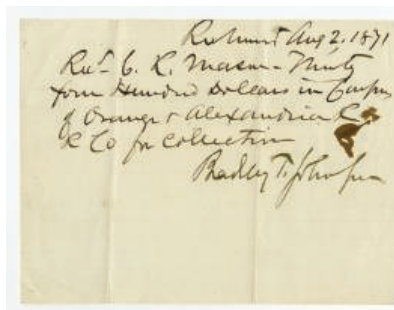 Richmond Aug 2. 1871
Rec^d C. R. Mason - Thirty
four Hundred Dollars in Coupons
of Orange & Alexandria R.
R Co for collection
Bradley T. Johnson